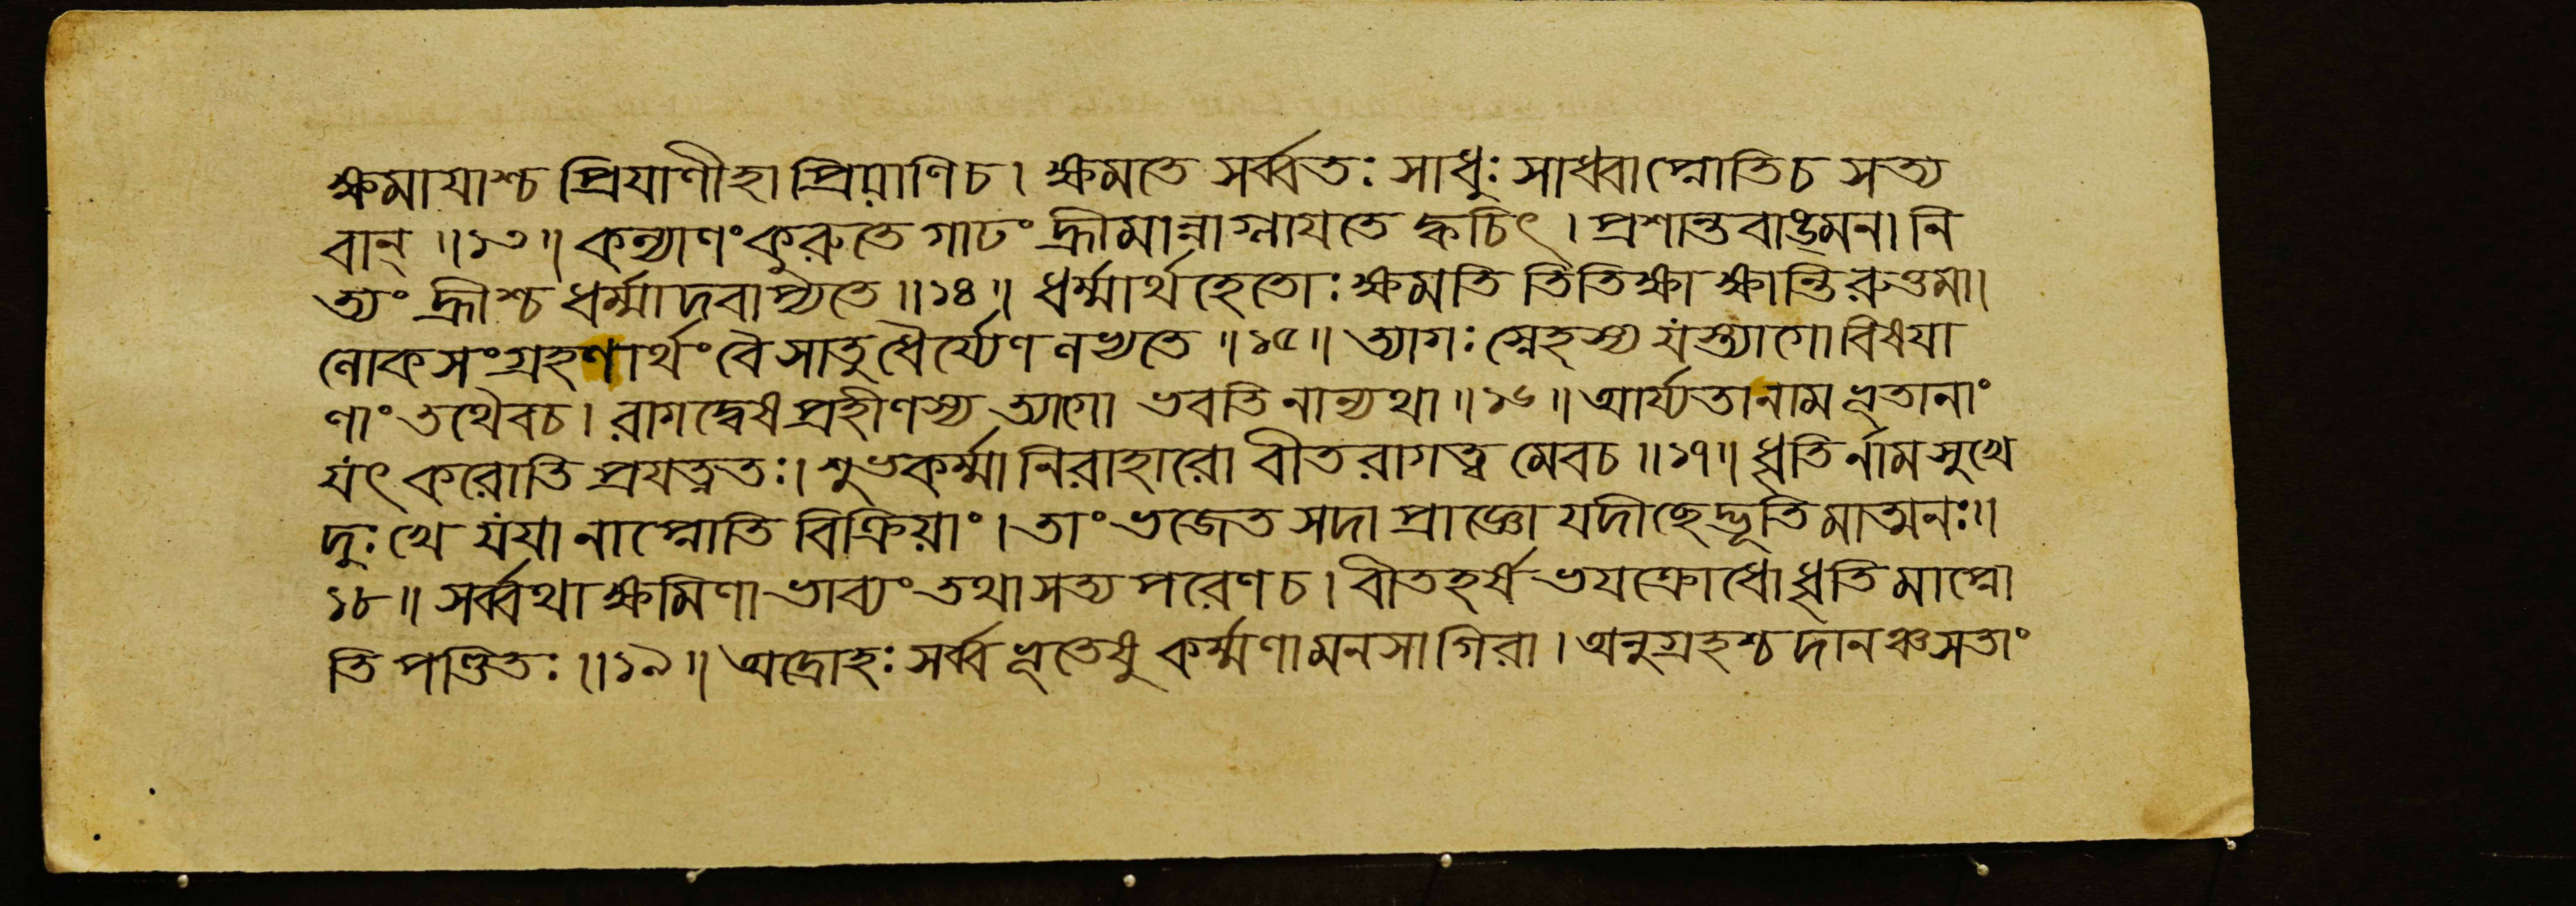 ক্ষমাযাশ্চ প্রিযাণীহা প্রিয়াণিচ। ক্ষমতে সর্ব্বতঃ সাধুঃ সাধ্ববাপ্নোতিচ সত্য
বান্ ॥১৩॥ কল্যাণং কুরুতে গাঢং হ্রীমান্নাগ্লাযতে ক্বচিৎ। প্রশান্তবাঙ্মনা নি
ত্যং হ্রীশ্চ ধর্ম্মাদবাপ্যতে ॥১৪॥ ধর্ম্মার্থহেতোঃ ক্ষমতি তিতিক্ষা ক্ষান্তিরুত্তমা।
লোকসংগ্রহণার্থং বৈ সাতুধৈর্য্যেণ লভ্যতে ॥১৫॥ ত্যাগঃ স্নেহস্য যস্ত্যাগো বিষযা
ণাং তথৈবচ। রাগদ্বেষপ্রহীণস্য ত্যাগো ভবতি নান্যথা ॥১৬॥ আর্য্যতানাম ভূতানাং
যৎ করোতি প্রযত্নতঃ। শুভকর্ম্মা নিরাহারো বীতরাগত্ব মেবচ ॥১৭॥ ধৃতি র্নাম সুখে
দুঃখে যযা নাপ্নোতি বিক্রিয়াং। তাং ভজেত সদা প্রাজ্ঞো যদীহেদ্ভূতি মাত্মনঃ॥
১৮॥ সর্ব্বথা ক্ষমিণা ভাব্যং তথা সত্য পরেণ চ। বীতহর্ষ ভযক্রোধো ধৃতি মাপ্নো
তি পণ্ডিতঃ ॥১৯॥ অদ্রোহঃ সর্ব্ব ভূতেষু কর্ম্মণা মনসা গিরা। অনুগ্রহশ্চ দানঞ্চ সতাং